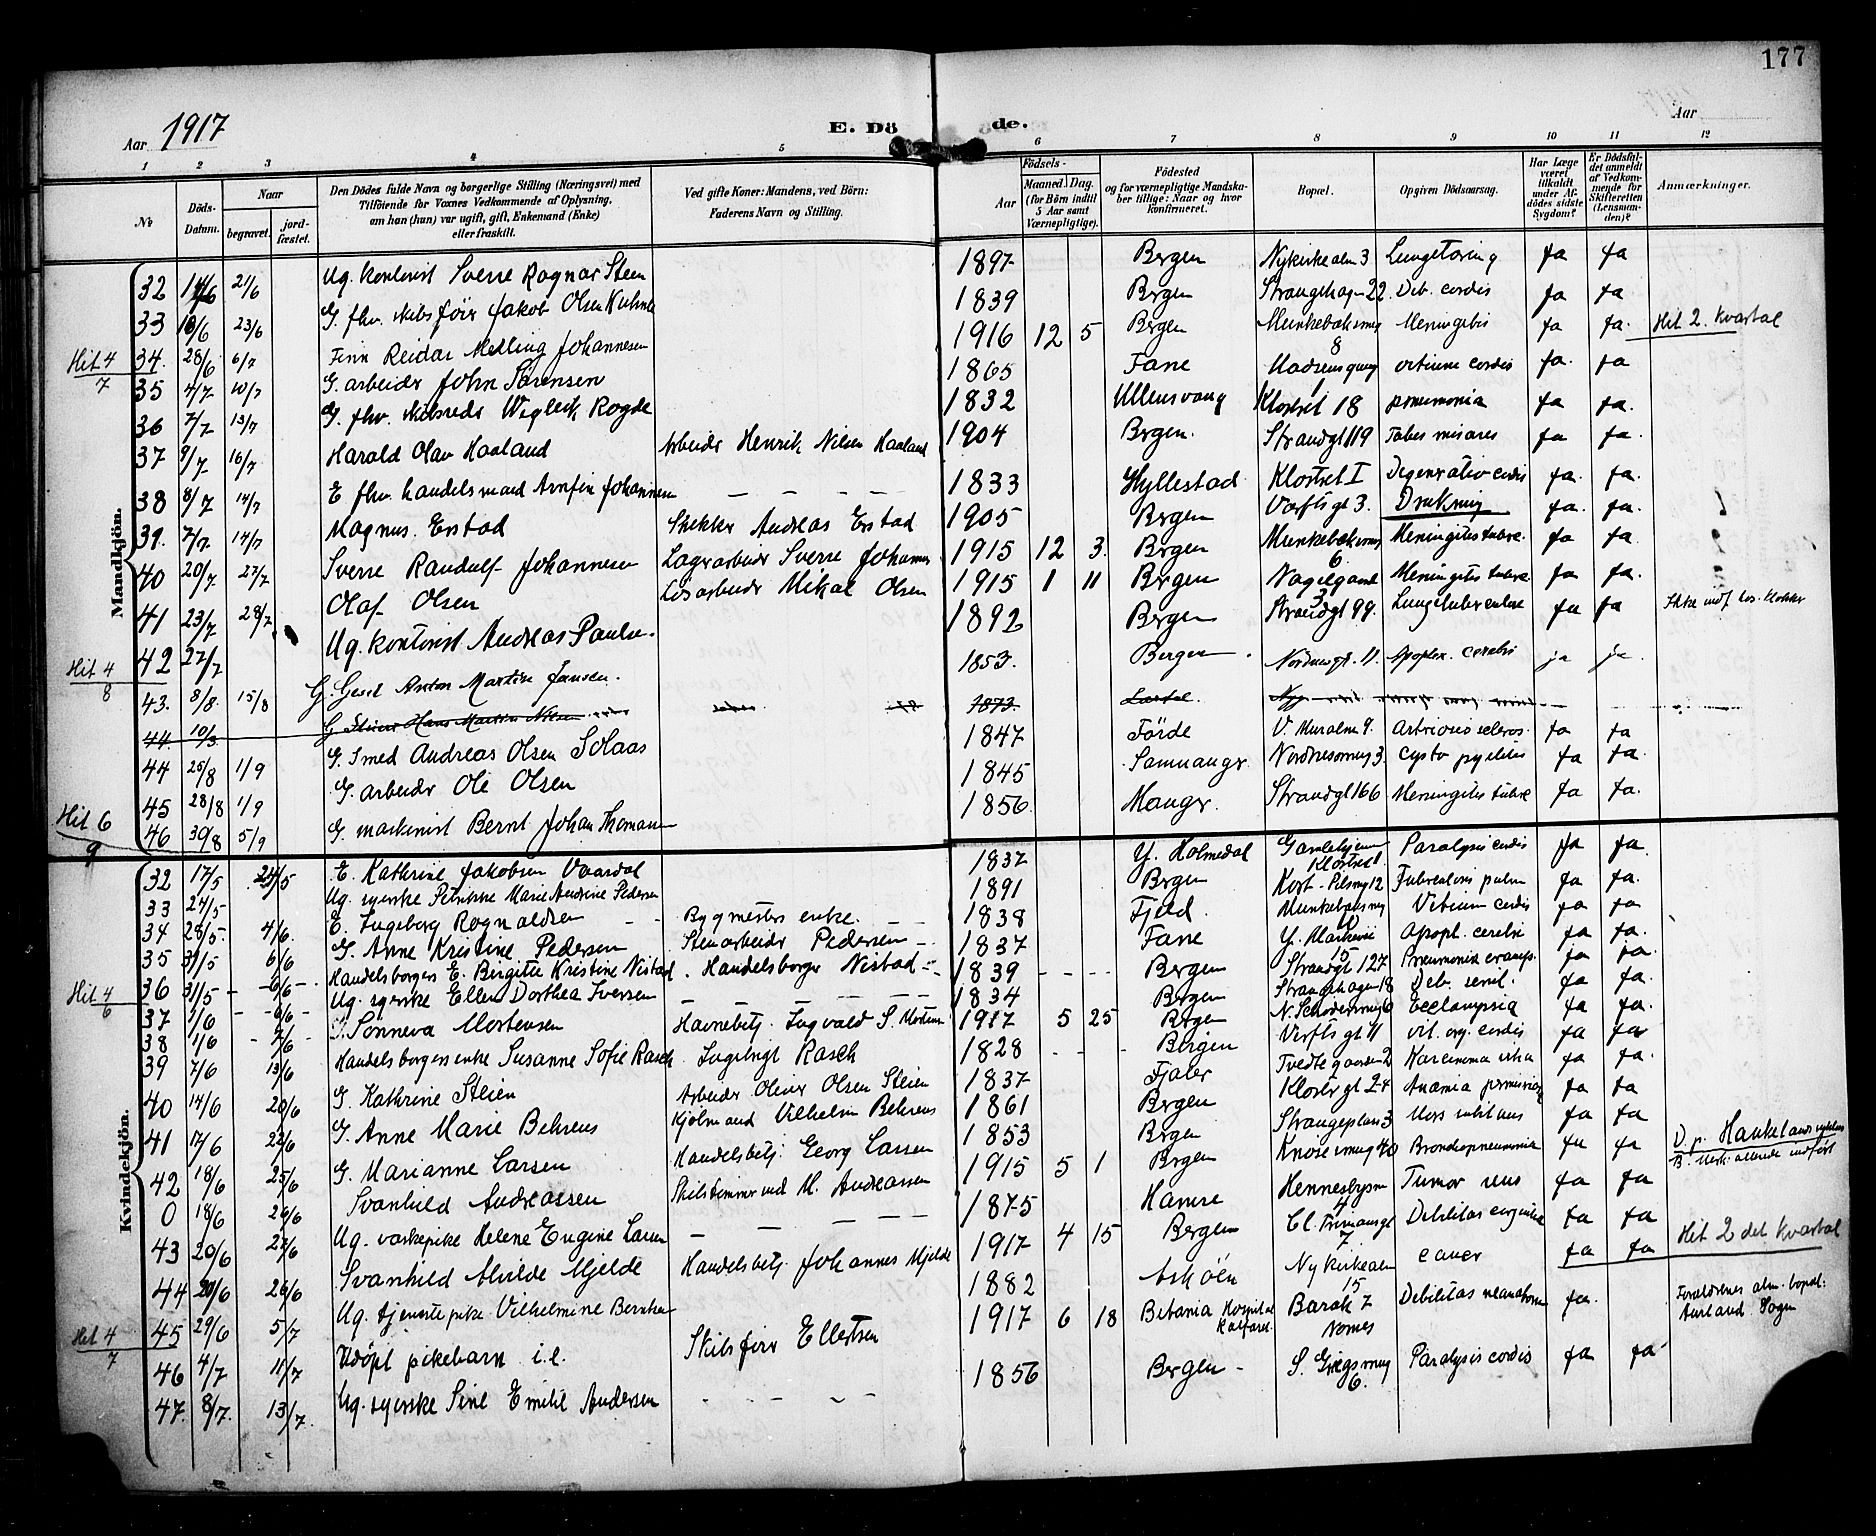 177
Aar 1917 E. Dö de. Aar
1 2 3 4 5 6 7 8 9 10 11 12
№ Döds-Datum. Naar begravet. jord-fæstet. Den Dödes fulde Navn og borgerlige Stilling (Næringsvei) med Tilföiende for Voxnes Vedkommende af Oplysning, om han (hun) var ugift, gift, Enkemand (Enke) eller fraskilt. Ved gifte Koner: Mandens, ved Börn: Faderens Navn og Stilling. Födsels- Aar Maaned. Dag. (for Börn indtil 5 Aar samt Værnepligtige). Födested og for værnepligtige Mandskaber tillige: Naar og hvor konfirmeret. Bopæl. Opgiven Dödsaarsag. Har Læge været tilkaldt under Afdödes sidste Sygdom? Er Dödsfaldet anmeldt af Vedkommende for Skifteretten (Lensmanden)? Anmærkninger.
Mandkjön.
32 21/6 Ug. kontorist Sverre Ragnar Steen 1897 Bergen Nykirkealm 3 Lungetæring ja ja
33 18/6 23/6 G. fhv. skibsförer Jakob Olsen 1839 Bergen Strangehagen 22. Deb. cordis ja ja
Hit 4/7 34. 28/6 6/7 Finn Reidar Melling Johannesen 1916 12 5 Bergen Munkebæksmug 8 Meningitis ja ja. Hit 2. Kvartal
35 4/7 10/7 G. arbeider John Sörensen 1865 Fane 1 vitium cordis ja. ja
36 7/7 13/7 G. fhv. skibsreder Rogde 1832 Ullensvang Klostret 18 pneumonia ja ja.
37 9/7 16/7 Harald Olav Haaland Arbeider Henrik Nilsen Haaland 1904 Bergen. Strandgt 119 Tabes ja ja.
38 8/7 14/7 E. fhv. handelsmand Arnfin Johannesen 1833 Hyllestad Klostret I Degeneratio cordis ja. ja.
39. 7/7. 14/7 Magnus Erstad Andreas Erstad 1905 Bergen Verftsgt 3. Drukning ja. ja.
40 20/7 27/7 Sverre Randulf Johannesen Lagerarbeider Sverre Johannes 1915 12 3. Bergen Munkebæksmug 6 Meningitis tuberc. ja ja.
41 23/7 28/7 Olaf Olsen Løsarbeider Mikal Olsen 1915 1 11 Bergen 3 Meningitis tuberc. ja ja.
42 27/7 Ug. kontorist Andreas Paulsen. 1892 Bergen Strandgt 99. Lungetuberculose ja ja
Hit 4/8 43. 8/8. 15/8 G. Anton Martin Jansen. 1853. Bergen. Nordnesgt. 11. Apoplex. cerebri ja ja.
44 10/3 G. Hans Martin Nilsen 1873. Lærdal.
44 25/8 1/9 G. Smed Andreas Olsen Solaas 1847 Förde V. Muralm 9. ja ja
45 28/8 1/9 G. arbeider Ole Olsen 1845 Samnanger Nordnesmug 3 Cysto pyelitis ja ja.
Hit 6/9 46 30/8 5/9 G. maskinist Bernt Johan Thomassen 1856. Manger. Strandgt 166 Meningitis tuberc ja ja.
Kvindekjön.
32 17/5 24/5 E. Kathrine Jakobsen Vaardal 1837 Y. Holmedal Gamlehjem Klostret Paralysis cordis ja ja.
33 27/5 Ug. syerske Marie Andrine Pedersen 1891 Bergen 12 Tuberculosis pulm ja ja.
34 28/5. 4/6. E. Ingeborg Rognaldsen Bygmesters enke. 1838 Fjeld. Vitium cordis ja ja
35 31/5 6/6 G. Anne Kristine Pedersen Stenarbeider Pedersen 1837 Fane Y. Markevei 15 Apopl. cerebri ja ja.
Hit 4/6 36 31/5 6/6 Handelsborgers E. Birgitte Kristine Nistad. Handelsborger Nistad 1839 Bergen Strandgt 127 Pneumonia croup. ja ja.
37 1/6 6/6 Ug. syerske Ellen Dorthea Iversen 1834 Bergen Strangehagen 18 Deb. senil. ja ja.
38 1/6 7/6 Sonneva Mortensen Havnebetj. Ingvald S. Mortens 1917 5 25 Bergen 6 Ecclampsia ja ja.
39 7/6 13/6 Handelsborgers enke Susanne Sofie Rasch. Ingebrigt Rasch 1828 Bergen Verftsgt 11 vit. org. cordis ja ja
40 14/6 20/6 G. Kathrine Steien Arbeider Oliver Olsen Steien 1837 Fjaler Tvedtegaarden 2 Karcinoma ja ja.
41 17/6 22/6 G. Anne Marie Behrens Kjölmand Vilhelm Behrens 1861 Bergen Klostergt 24 Anæmia perniciosa ja ja
42 18/6 25/6 G. Marianne Larsen Handelsbetj. Georg Larsen 1853 Bergen 3 Mors subitans ja ja
0 18/6 26/6 Svanhild Andreassen Skibstømmermd M. Andreassen 1915 5 1 Bergen Knösesmug 40 Bronchopneumonia ja ja D. p. Haukelands sykehus
43 20/6 27/6 Ug. vaskepike Helene Eugine Larsen 1875 Hamre 4 Tumor ja ja
44 20/6 26/6 Svanhild Alvilde Mjelde Handelsbetj. Johannes Mjelde 1917 4 15 Bergen 7 Debilitas congenita ja ja Hit 2 det Kvartal
Hit 4/7 45 29/6 5/7 Ug. tjenestepike Vilhelmine Berntsen 1882 Asköen Nykirkealm 15 cancer ja ja
46 4/7 11/7 Udöpt pikebarn i.e. Skibsförer Ellertsen 1917 6 18 Betania Hospital Kalfaret. Barak 7 Nornes Debilitas neonatorum ja. Forældrenes alm. bopæl: Aurland Sogn
47. 8/7. 13/7. Ug. syerske Sine Emilie Andersen 1856 Bergen S. Griegsmug 6. Paralysis cordis ja ja